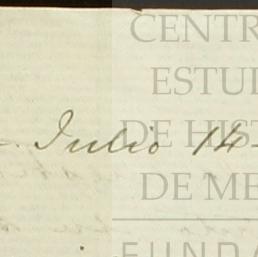 CENTR
ESTUI
Julio 14
DE HIST
DE ME
FUNDA